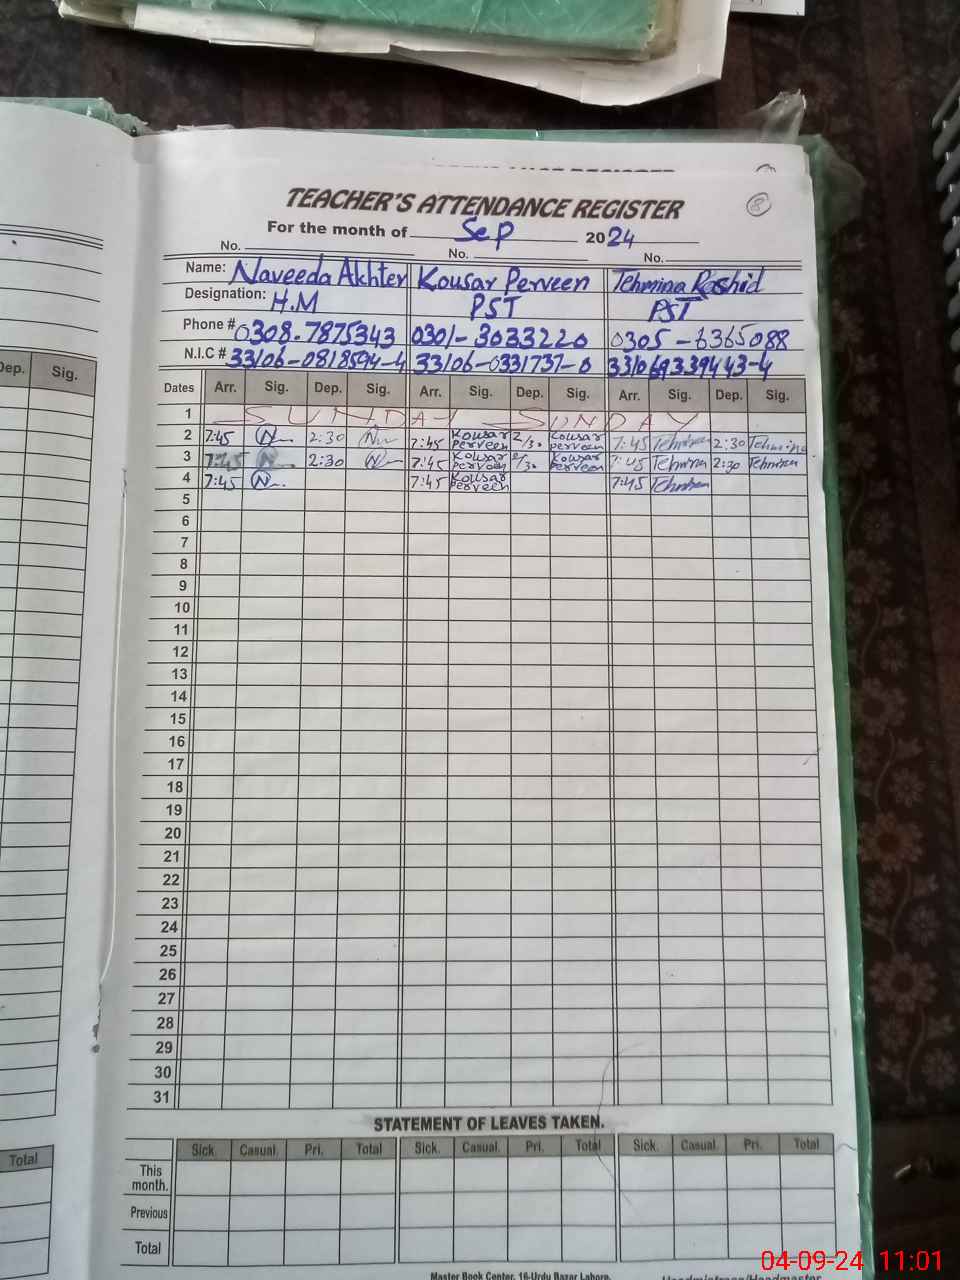 TEACHER'S ATTENDANCE REGISTER
8
For the month of Sep 2024
No. No. No.
Name: Naveeda Akhter Kousar Perveen Tehmina Rashid
Designation: H.M PST PST
Phone # 0308-7875343 0301-3033220 0305-6365088
N.I.C # 33106-0818594-4 33106-0331737-0 33106933944 3-4
Dates Arr. Sig. Dep. Sig. Arr. Sig. Dep. Sig. Arr. Sig. Dep. Sig.
1 SUNDAY SUNDAY
2 7:45 N 2:30 N 7:45 Kousar Perveen 2/30 Kousar Perveen 7:45 Tehmina 2:30 Tehmina
3 7:45 N 2:30 N 7:45 Kousar Perveen 2/30 Kousar Perveen 7:45 Tehmina 2:30 Tehmina
4 7:45 N 7:45 Kousar Perveen 7:45 Tehmina
5
6
7
8
9
10
11
12
13
14
15
16
17
18
19
20
21
22
23
24
25
26
27
28
29
30
31
STATEMENT OF LEAVES TAKEN.
Sick. Casual. Pri. Total Sick. Casual. Pri. Total Sick. Casual. Pri. Total
This month.
Previous
Total
Master Book Center, 16-Urdu Bazar Lahore.
Headmistress/Headmaster
Dep. Sig.
Total
04-09-24 11:01